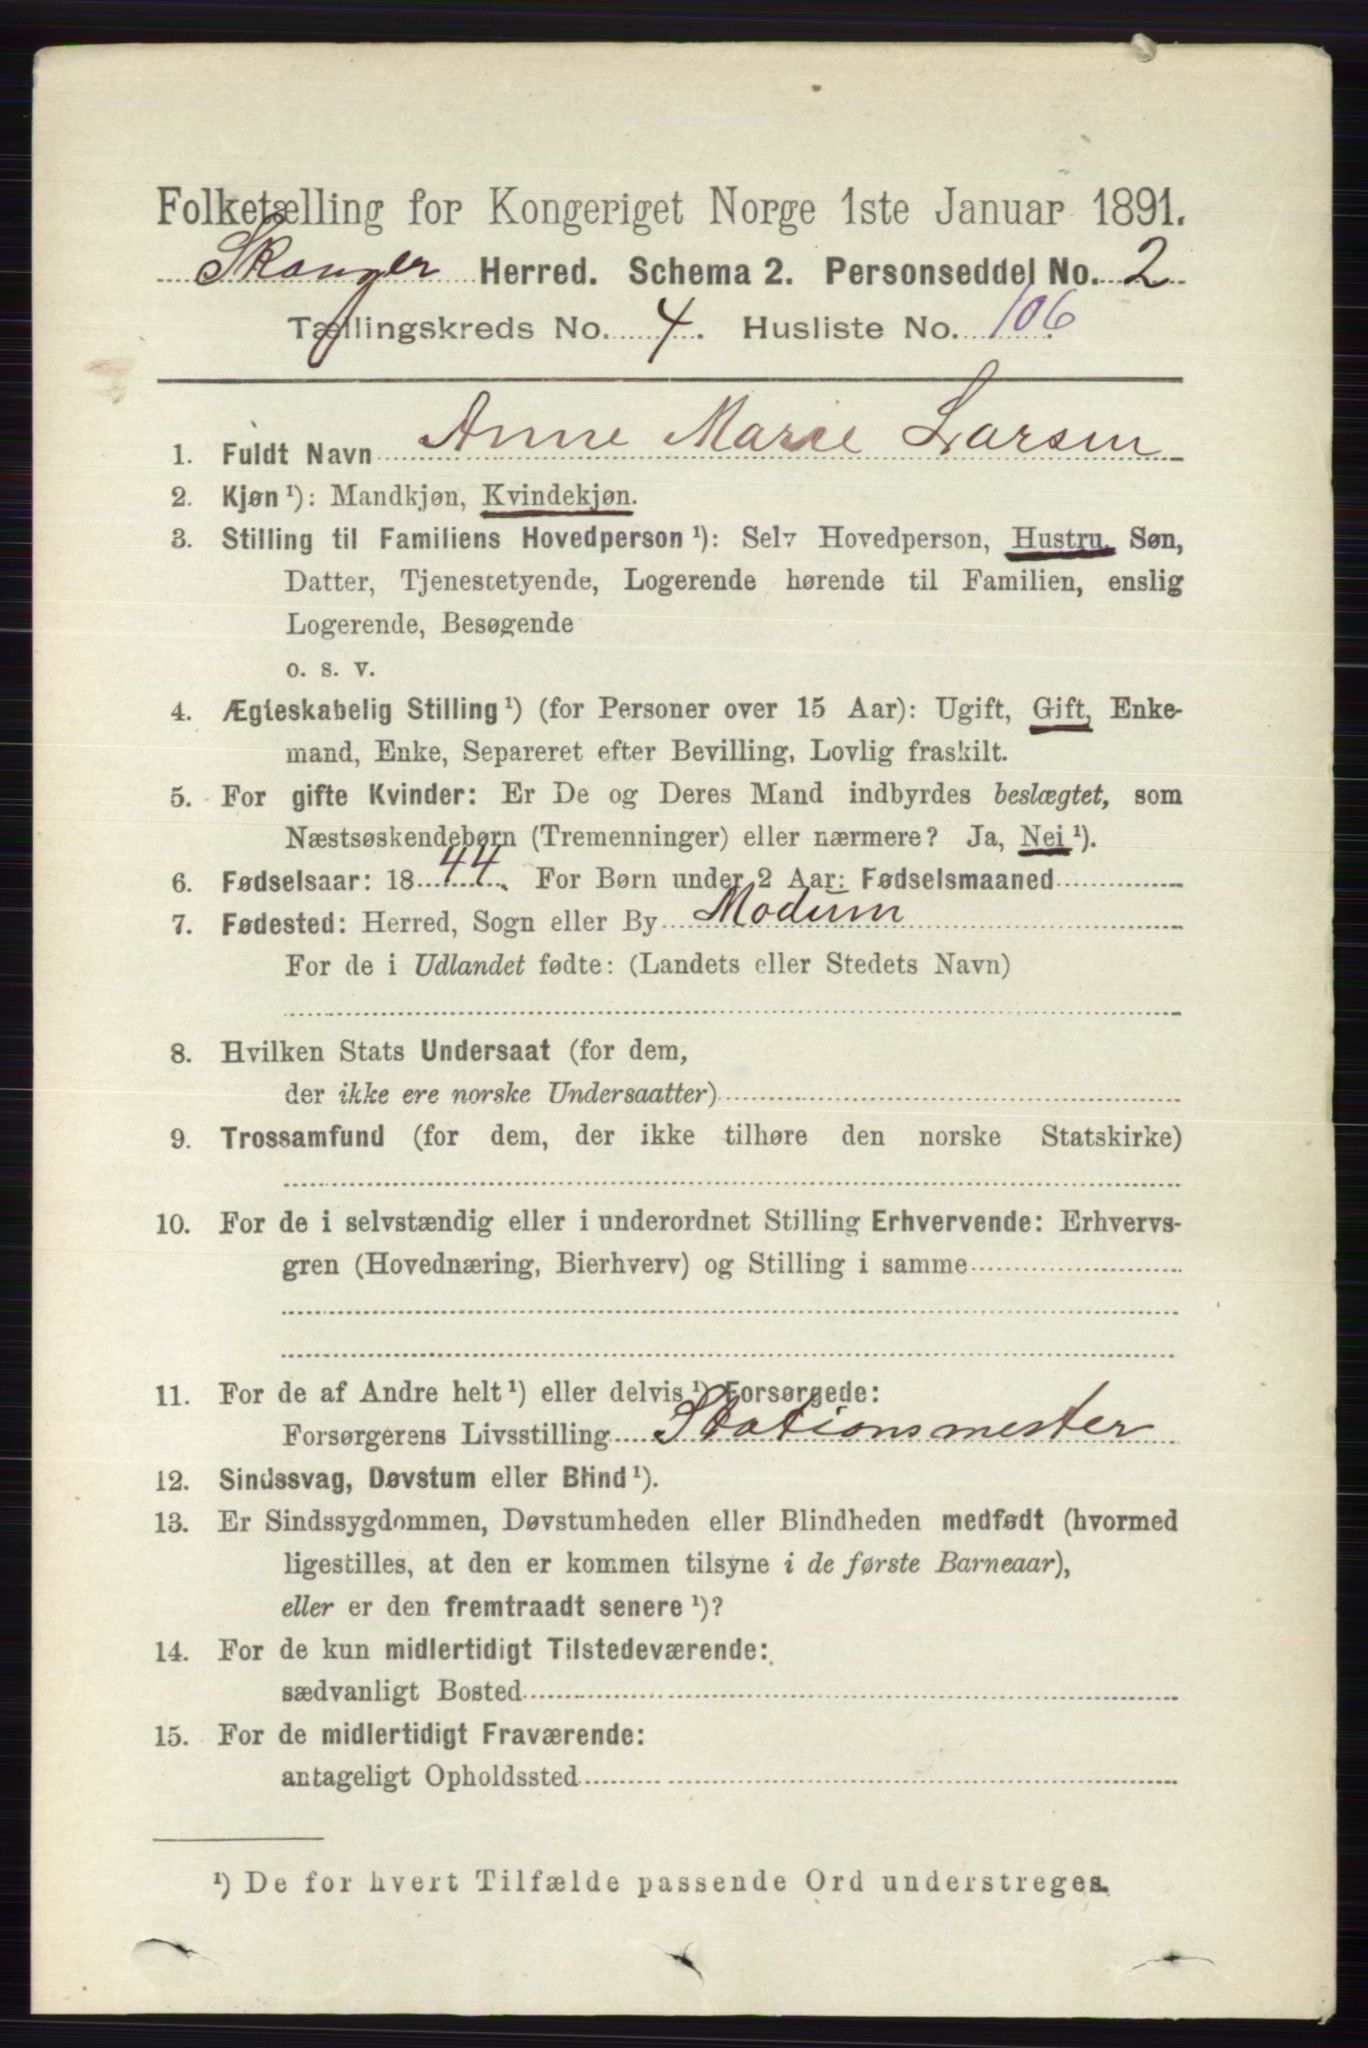 Folketælling for Kongeriget Norge 1ste Januar 1891.
Skouger Herred. Schema 2. Personseddel No. 2
Tællingskreds No. 4. Husliste No. 106
1. Fuldt Navn Anne Marie Larsen
2. Kjøn ¹): Mandkjøn, Kvindekjøn.
3. Stilling til Familiens Hovedperson ¹): Selv Hovedperson, Hustru, Søn,
Datter, Tjenestetyende, Logerende hørende til Familien, enslig
Logerende, Besøgende
o. s. v.
4. Ægteskabelig Stilling ¹) (for Personer over 15 Aar): Ugift, Gift, Enke-
mand, Enke, Separeret efter Bevilling, Lovlig fraskilt.
5. For gifte Kvinder: Er De og Deres Mand indbyrdes beslægtet, som
Næstsøskendebørn (Tremenninger) eller nærmere? Ja, Nei ¹).
6. Fødselsaar: 1844. For Børn under 2 Aar: Fødselsmaaned
7. Fødested: Herred, Sogn eller By Modum
For de i Udlandet fødte: (Landets eller Stedets Navn)
8. Hvilken Stats Undersaat (for dem,
der ikke ere norske Undersaatter)
9. Trossamfund (for dem, der ikke tilhøre den norske Statskirke)
10. For de i selvstændig eller i underordnet Stilling Erhvervende: Erhvervs-
gren (Hovednæring, Bierhverv) og Stilling i samme
11. For de af Andre helt ¹) eller delvis ¹) Forsørgede:
Forsørgerens Livsstilling Stationsmester
12. Sindssvag, Døvstum eller Blind ¹).
13. Er Sindssygdommen, Døvstumheden eller Blindheden medfødt (hvormed
ligestilles, at den er kommen tilsyne i de første Barneaar),
eller er den fremtraadt senere ¹)?
14. For de kun midlertidigt Tilstedeværende:
sædvanligt Bosted
15. For de midlertidigt Fraværende:
antageligt Opholdssted
¹) De for hvert Tilfælde passende Ord understreges.